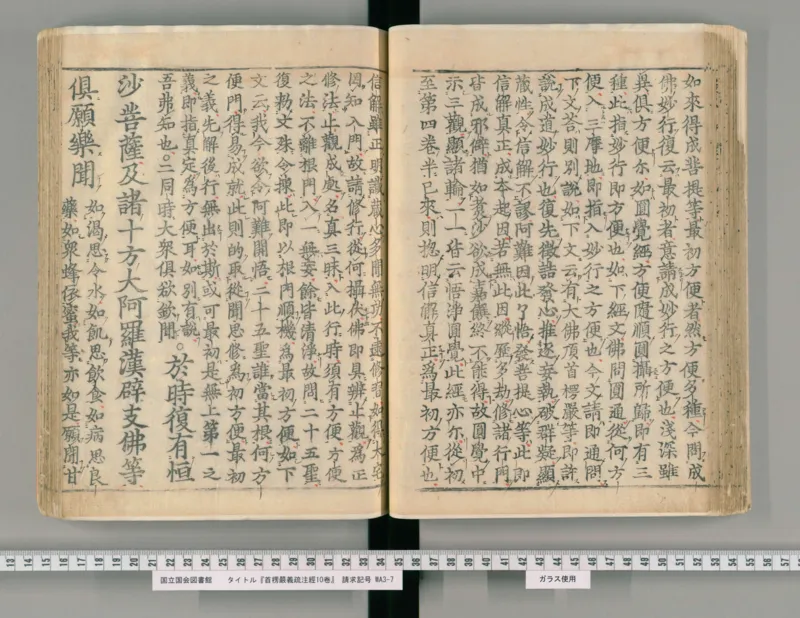 如來得成菩提等最初方便者然方便多種今問成
佛妙行復云最初者意請成妙行之方便也淺深雖
異俱方便尒如圓覺經方便隨順圓攝所歸即有三
種此指妙行即方便也如下經文佛問圓通從何方
便入三摩地即指入妙行之方便也今文請即通問
下文荅則別說如下文云有大佛頂首楞嚴等即許
說成道妙行也復先徵詰發心推逐妄執破群疑顯
藏性令信解不謬阿難因此了悟發菩提心等此即
信解真正成本起因若無此因縱歷多劫修諸行門
皆成邪僻猶如煑沙欲成嘉饌終不能得故圓覺中
示三觀顯諸輪一一皆云悟淨圓覺此經亦尒從初
至第四卷半已來則揔明信解真正為最初方便也
信解雖正明識藏心多聞無功不逮修習如得大宅
因知入門故請修行從何攝伏佛即具辨止觀為正
修法止觀成處名真三昧入此行時須有方便方便
之法不離根門入一無妄餘皆清淨故問二十五聖
復勑文殊令揀此即以根門順機為最初方便如下
文云我今欲令阿難開悟二十五聖誰當其根何方
便門得易成就此則的取從聞思修為初方便最初
之義先解後行無出於斯或可最初是無上第一之
義即指真定為方便耳如別有說
吾弗知也。二同時大眾俱欲欽聞。於時復有恒
沙菩薩及諸十方大阿羅漢辟支佛等
俱願樂聞如渴思令水如飢思飲食如病思良
藥如衆蜂依蜜我等亦如是願聞甘
13 14 15 16 17 18 19 20 21 22 23 24 25 26 27 28 29 30 31 32 33 34 35 36 37 38 39 40 41 42 43 44 45 46 47 48 49 50 51 52 53 54 55 56 57
国立国会図書館 タイトル『首楞嚴義疏注經10巻』 請求記号 WA3-7
ガラス使用